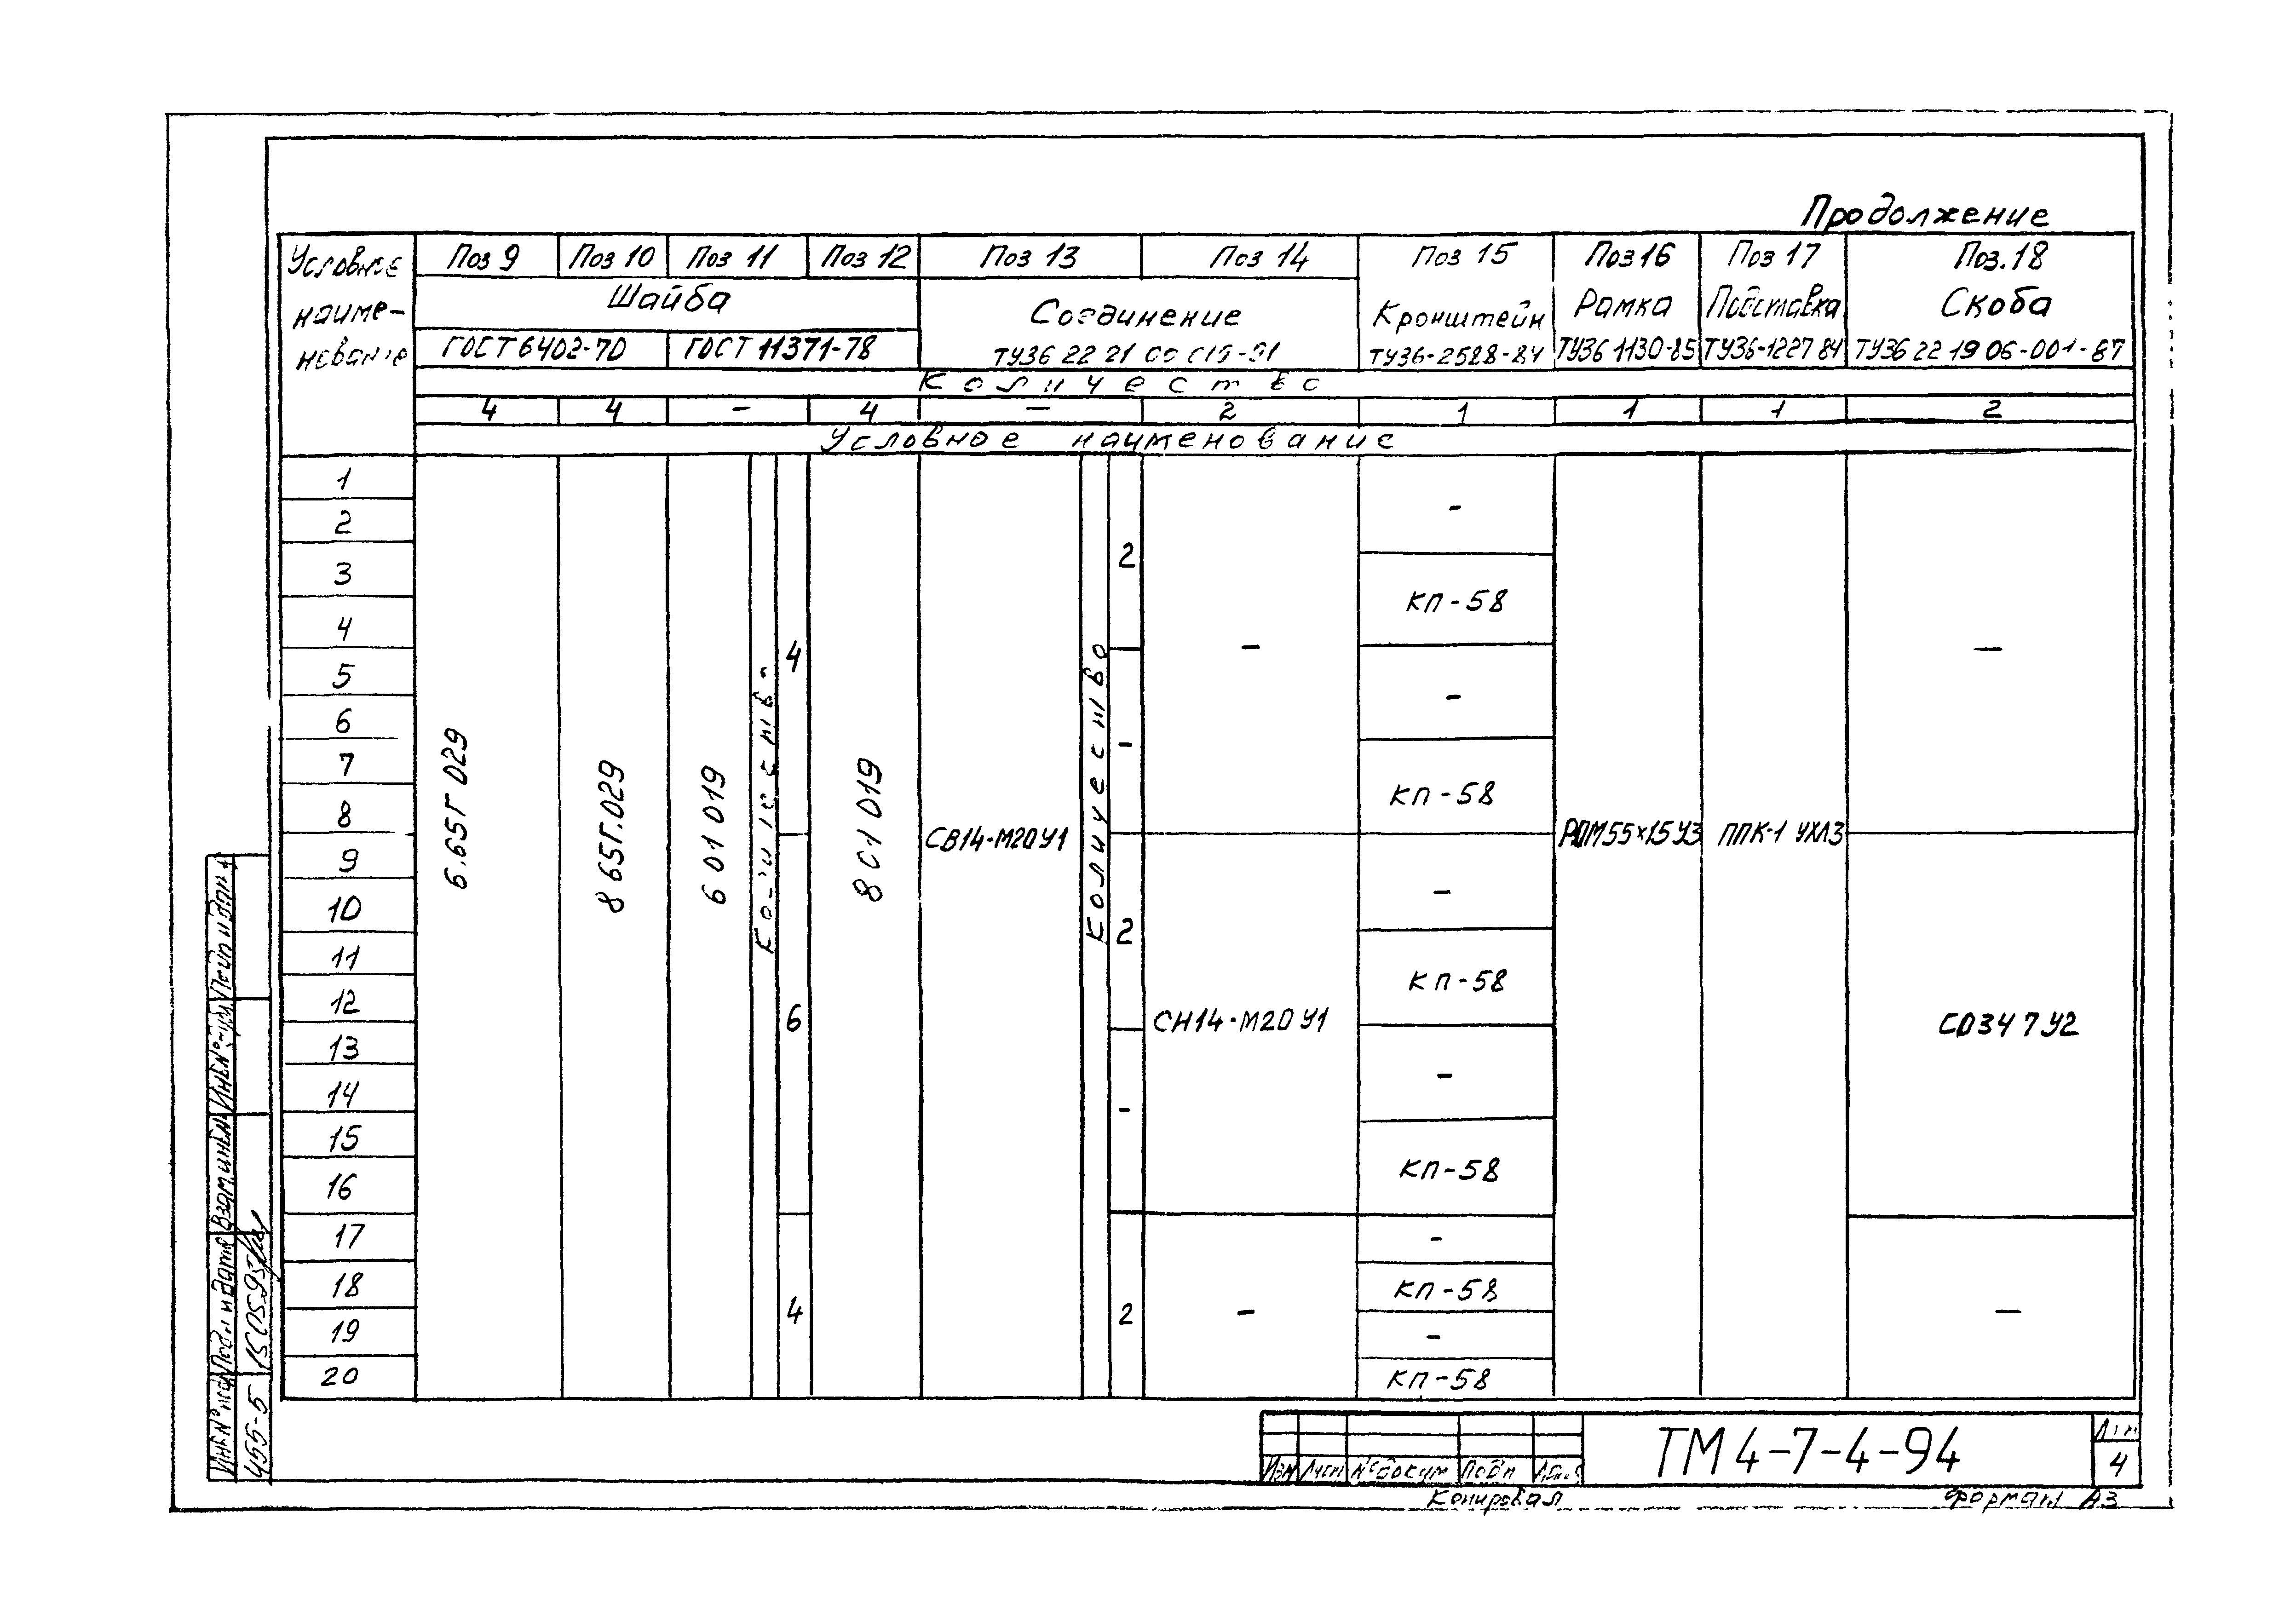 Продолжение
Условное наиме- нование
Поз 9 Поз 10 Поз 11 Поз 12 Поз 13 Поз 14 Поз 15 Поз 16 Поз 17 Поз.18
Шайба Соединение Кронштейн Рамка Подставка Скоба
ГОСТ 6402-70 ГОСТ 11371-78 ТУ36 22 21 ТУ36-2528-84 ТУ36 1130-85 ТУ36-1227 84 ТУ36 22 19 06-001-87
Количество
4 4 - 4 - 2 1 1 1 2
Условное наименование
1
2
3
4
5
6
7
8
9
10
11
12
13
14
15
16
17
18
19
20
6.65Г 029
8 65Г.029
6 01 019
Количество
4
6
4
8 01 019
СВ14-М20У1
Количество
2
-
2
-
2
-
СН14-М20У1
-
-
КП-58
-
КП-58
-
КП-58
-
КП-58
-
КП-58
-
КП-58
РПМ55×15У3
ППК-1 УХЛ3
-
СО34 7У2
-
Подп и дата
Взам инв№
Подп и дата
150595
Инв№ подл
455-5
Изм Лист №докум Подп Дата
ТМ4-7-4-94
Лист
4
Копировал
Формат А3